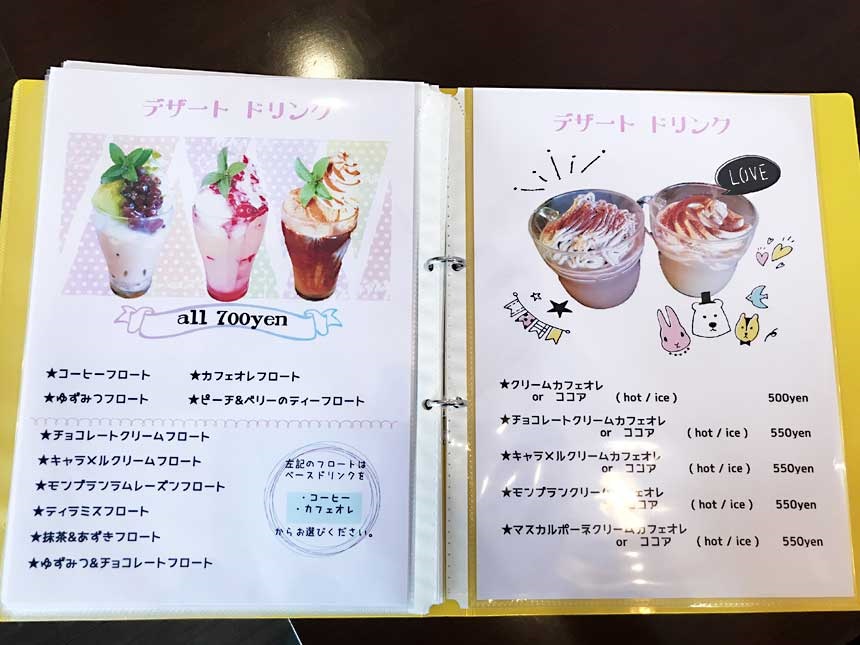 デザート ドリンク
all 700yen
★コーヒーフロート ★カフェオレフロート
★ゆずみつフロート ★ピーチ&ベリーのティーフロート
★チョコレートクリームフロート
★キャラメルクリームフロート
★モンブランラムレーズンフロート
★ティラミスフロート
★抹茶&あずきフロート
★ゆずみつ&チョコレートフロート
左記のフロートは
ベースドリンクを
・コーヒー
・カフェオレ
からお選びください。
デザート ドリンク
LOVE
★クリームカフェオレ
or ココア (hot / ice) 500yen
★チョコレートクリームカフェオレ
or ココア (hot / ice) 550yen
★キャラメルクリームカフェオレ
or ココア (hot / ice) 550yen
★モンブランクリームカフェオレ
or ココア (hot / ice) 550yen
★マスカルポーネクリームカフェオレ
or ココア (hot / ice) 550yen